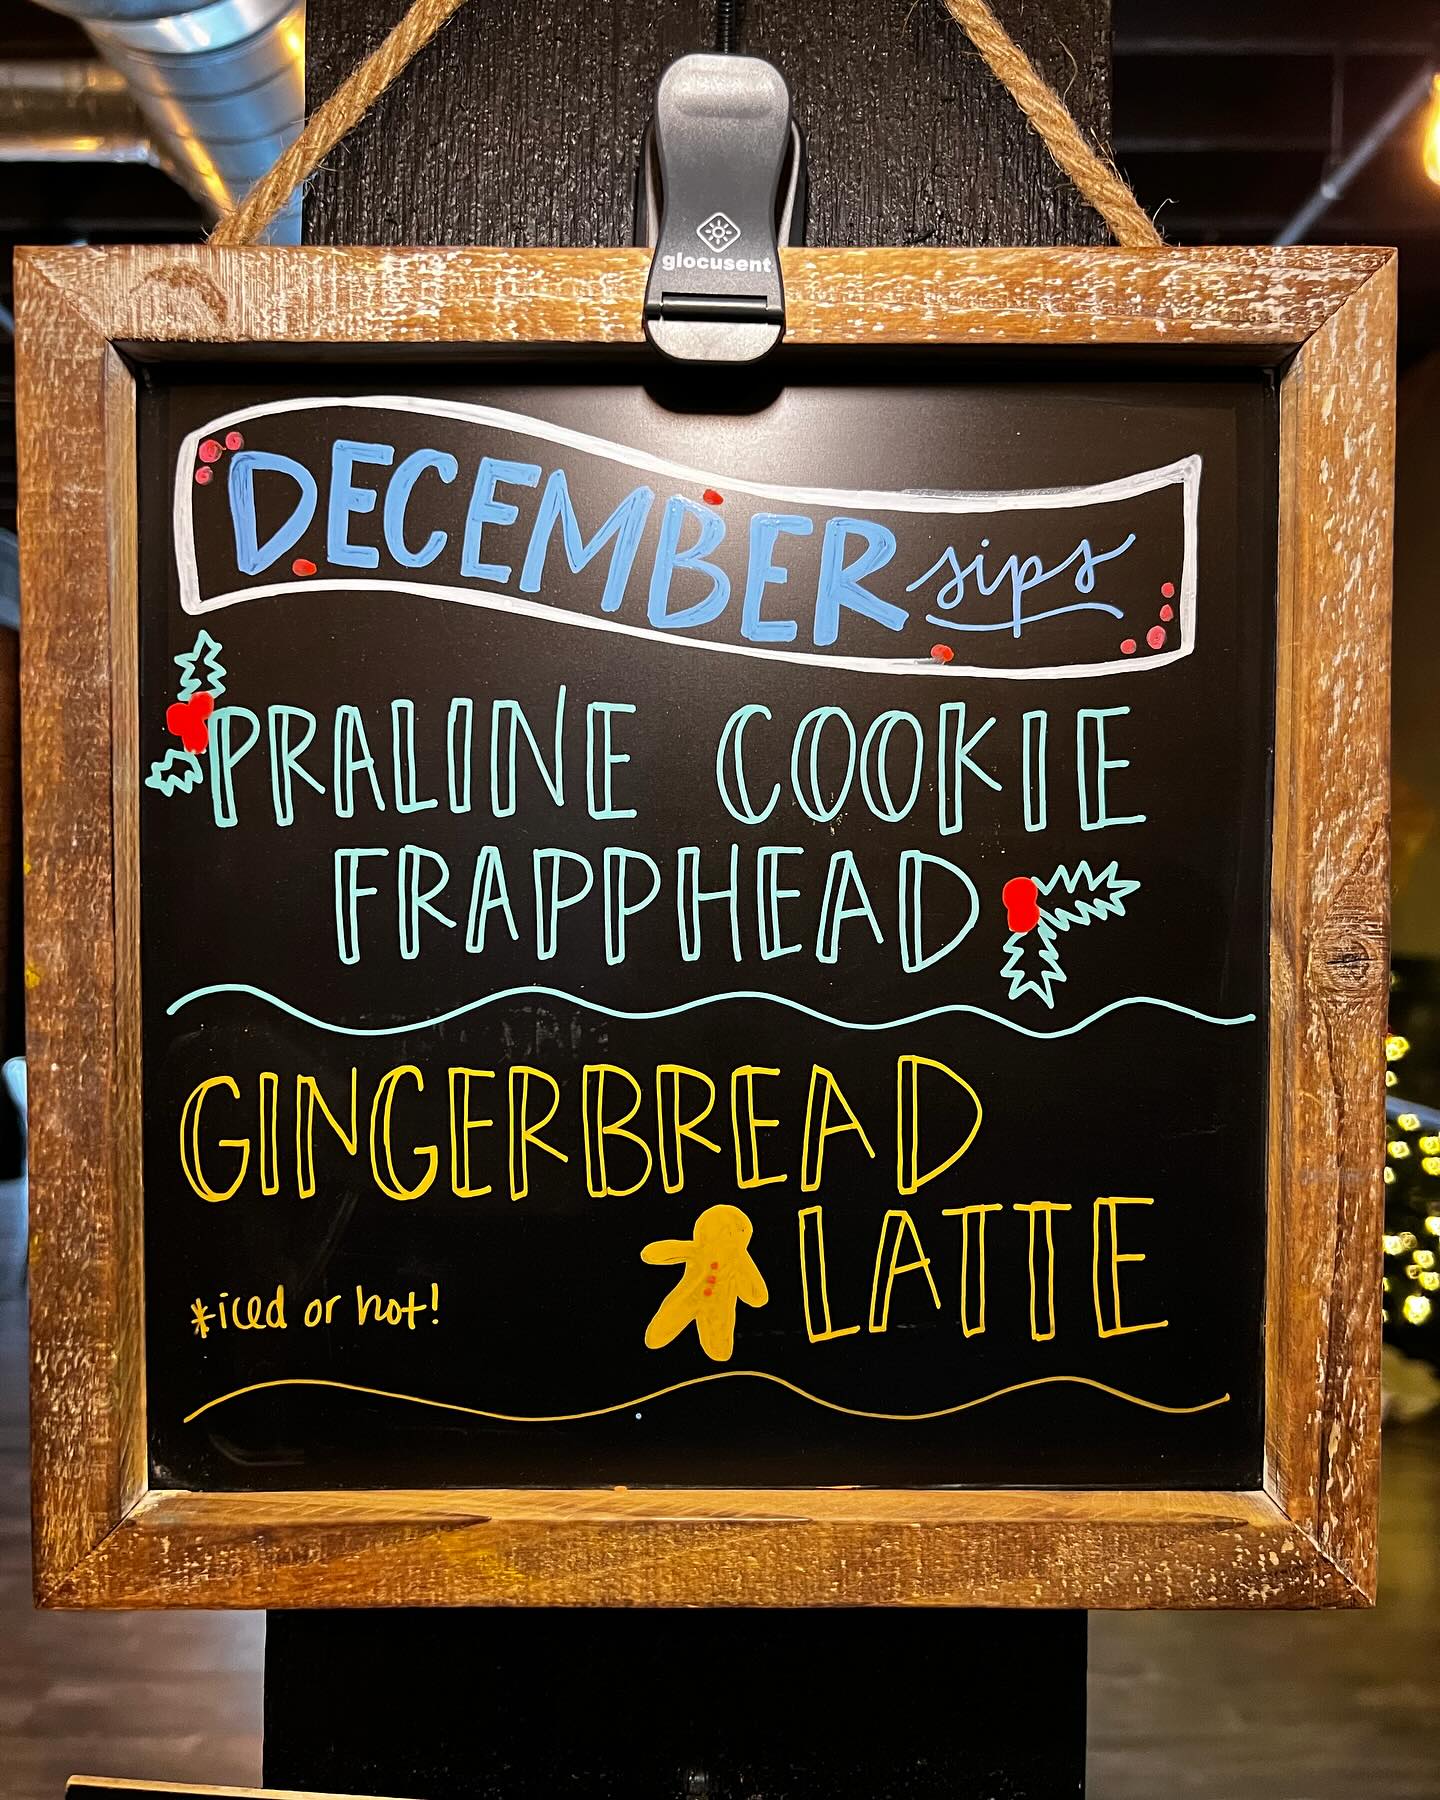 glocusent
DECEMBER sips
PRALINE COOKIE
FRAPPHEAD
GINGERBREAD
LATTE
*iced or hot!